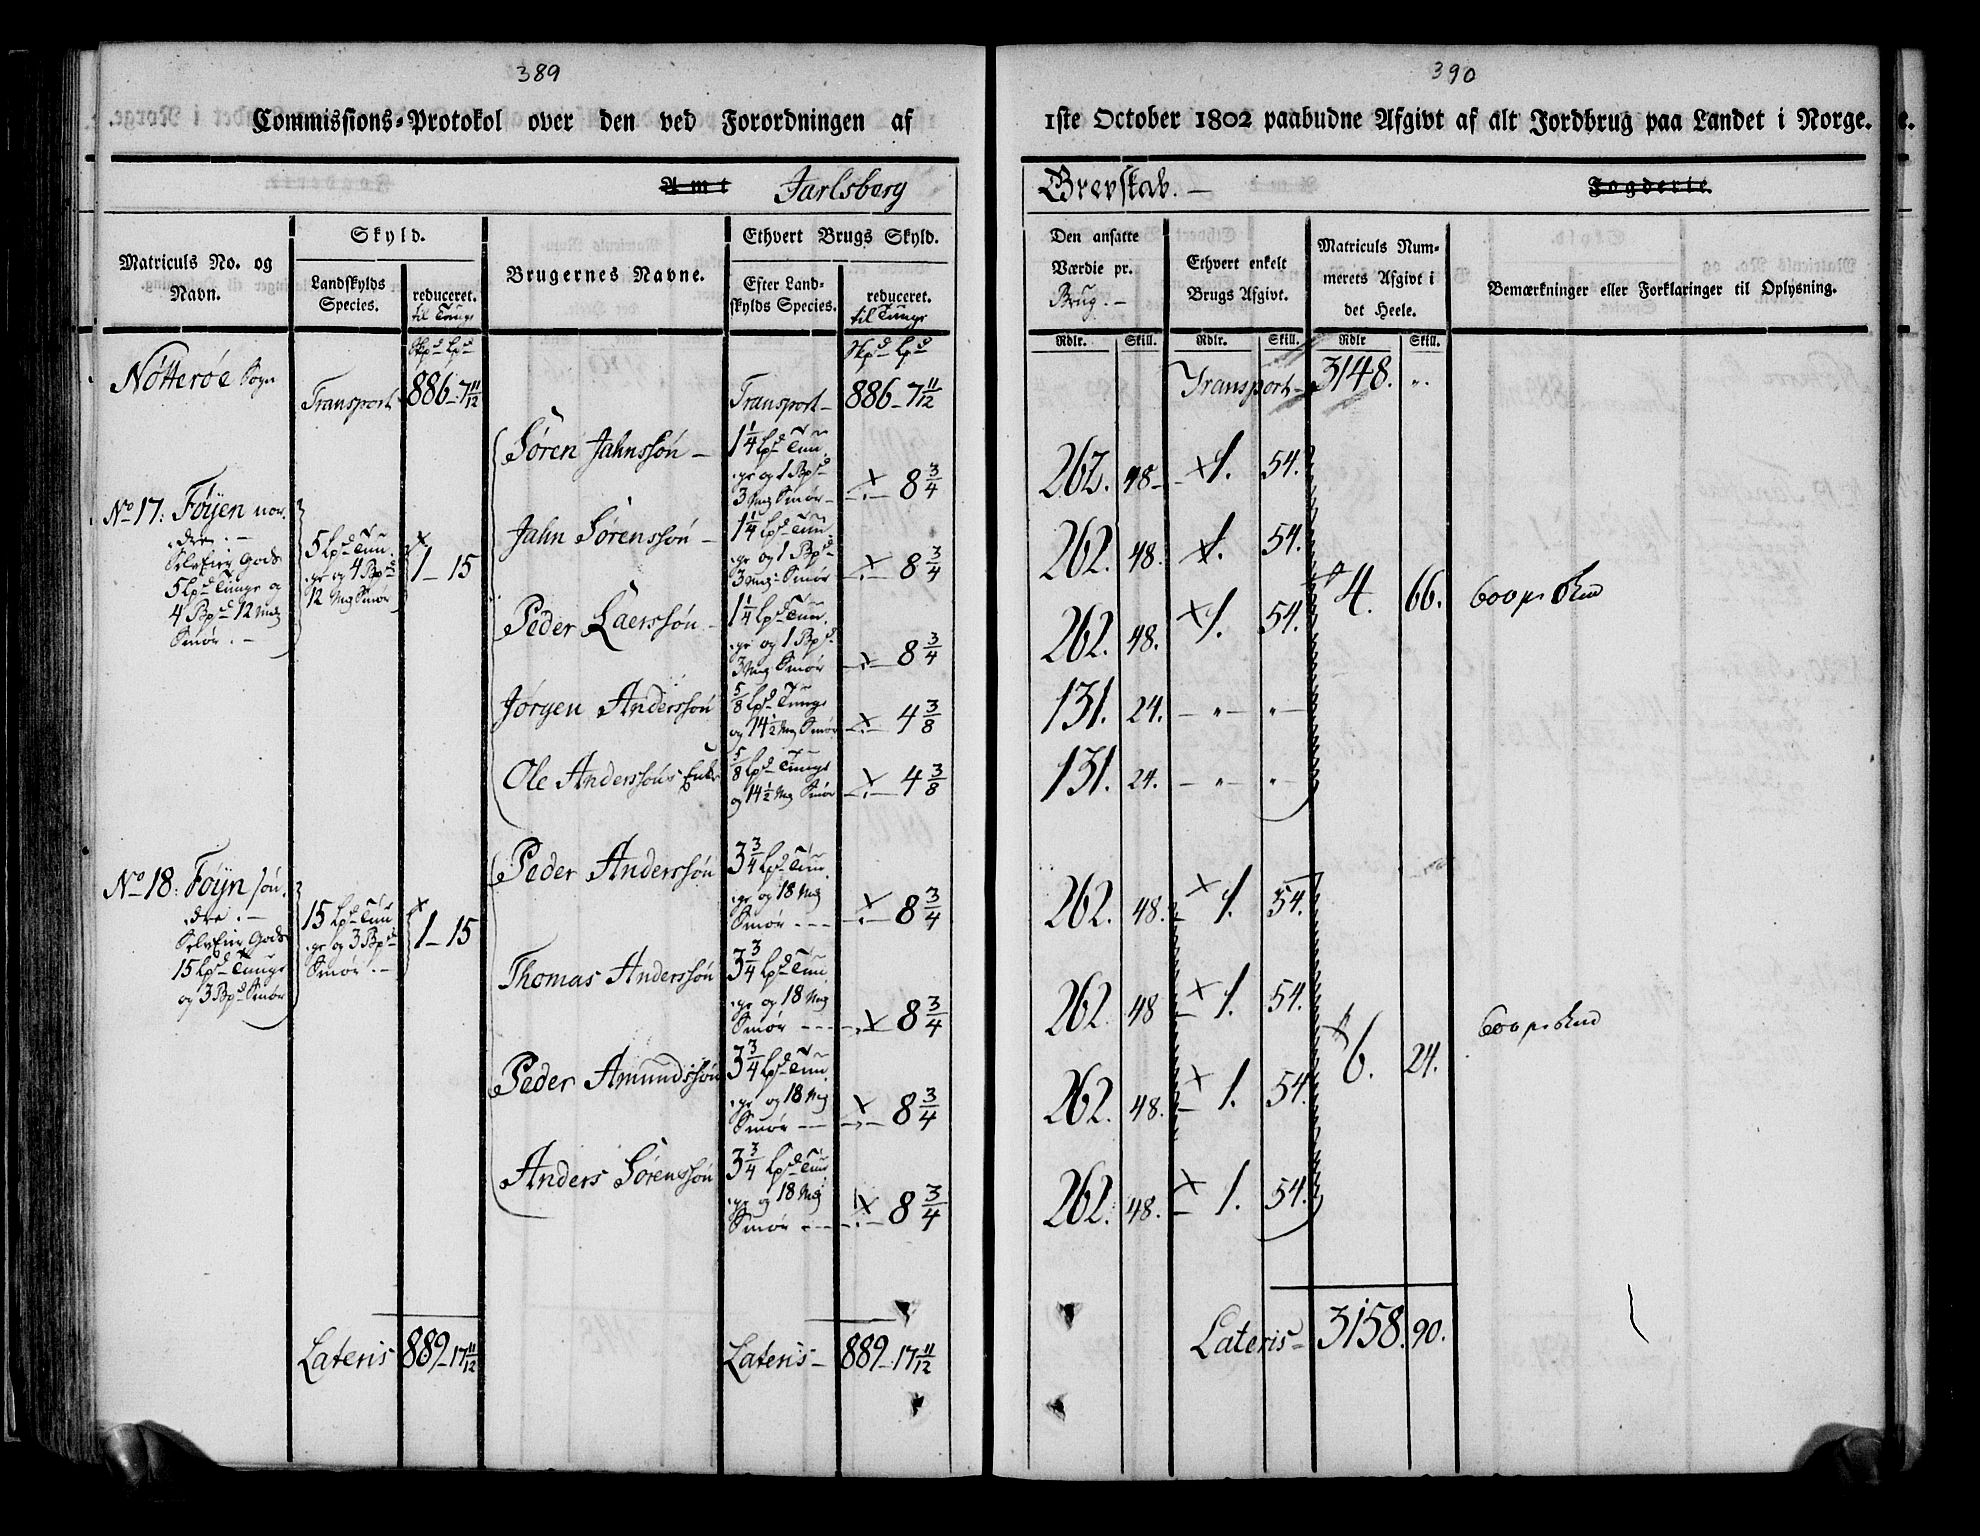 389
Commissions-Protokol over den ved Forordningen af
Amt Jarlsberg
Matriculs No. og Navn.
Skyld.
Landskylds Species.
reduceret. til Tunge
Brugernes Navne.
Ethvert Brugs Skyld.
Efter Landskylds Species.
reduceret. til Tunge
Skpd Lpd
Skpd Lpd
Nötteröe Sogn
Transport 886-7 11/12
Transport- 886-7 11/12
No 17: Föyen nor-
dre.-
SelvEier Gods
5 Lpd Tunge og
4 Bpd 12 Mrk
Smör.-
5 Lpd Tun-
ge og 4 Bpd
12 Mrk Smör
1-15
Sören Jahnssön-
1 1/4 Lpd Tun-
ge og 1 Bpd
3 Mrk Smör-
8 3/4
Jahn Sörenssön-
1 1/4 Lpd Tun-
ge og 1 Bpd
3 Mrk Smör
8 3/4
Peder Laerssön-
1 1/4 Lpd Tun-
ge og 1 Bpd
3 Mrk Smör
8 3/4
Jörgen Anderssön
5/8 Lpd Tunge
og 14 1/2 Mrk Smör
4 3/8
Ole Anderssöns Enke
5/8 Lpd Tunge
og 14 1/2 Mrk Smör
4 3/8
No 18: Föyn sön-
dre.-
SelvEier Gods
15 Lpd Tunge
og 3 Bpd Smör
15 Lpd Tun-
ge og 3 Bpd
Smör.-
1-15
Peder Anderssön
3 3/4 Lpd Tun-
ge og 18 Mrk
Smör ---
8 3/4
Thomas Anderssön
3 3/4 Lpd Tun-
ge og 18 Mrk
Smör ---
8 3/4
Peder Amundssön
3 3/4 Lpd Tun-
ge og 18 Mrk
Smör ---
8 3/4
Anders Sörenssön
3 3/4 Lpd Tun-
ge og 18 Mrk
Smör ---
8 3/4
Lateris 889-17 11/12
Lateris- 889-17 11/12
390
1ste October 1802 paabudne Afgivt af alt Jordbrug paa Landet i Norge.
Grevskab.- Fogderie.
Den ansatte Værdie pr. Brug.-
Ethvert enkelt Brugs Afgivt.
Matriculs Nummerets Afgivt i det Heele.
Bemærkninger eller Forklaringer til Oplysning.
Rdlr. Skill. Rdlr. Skill. Rdlr Skill.
Transport- 3148. ".
262. 48- 1. 54.
262. 48. 1. 54.
262. 48. 1. 54.
4. 66.
131. 24. - " - " -
131. 24. - " - " -
262. 48. 1. 54.
262. 48 1. 54.
6. 24.
262. 48. 1. 54.
262. 48. 1. 54.
Lateris- 3158. 90.